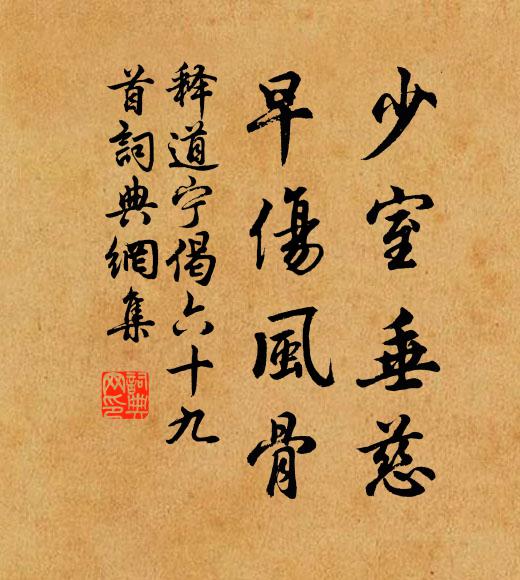 少室垂慈
早傷風骨
释道宁偈六十九
首詞典網集
詞典
网印